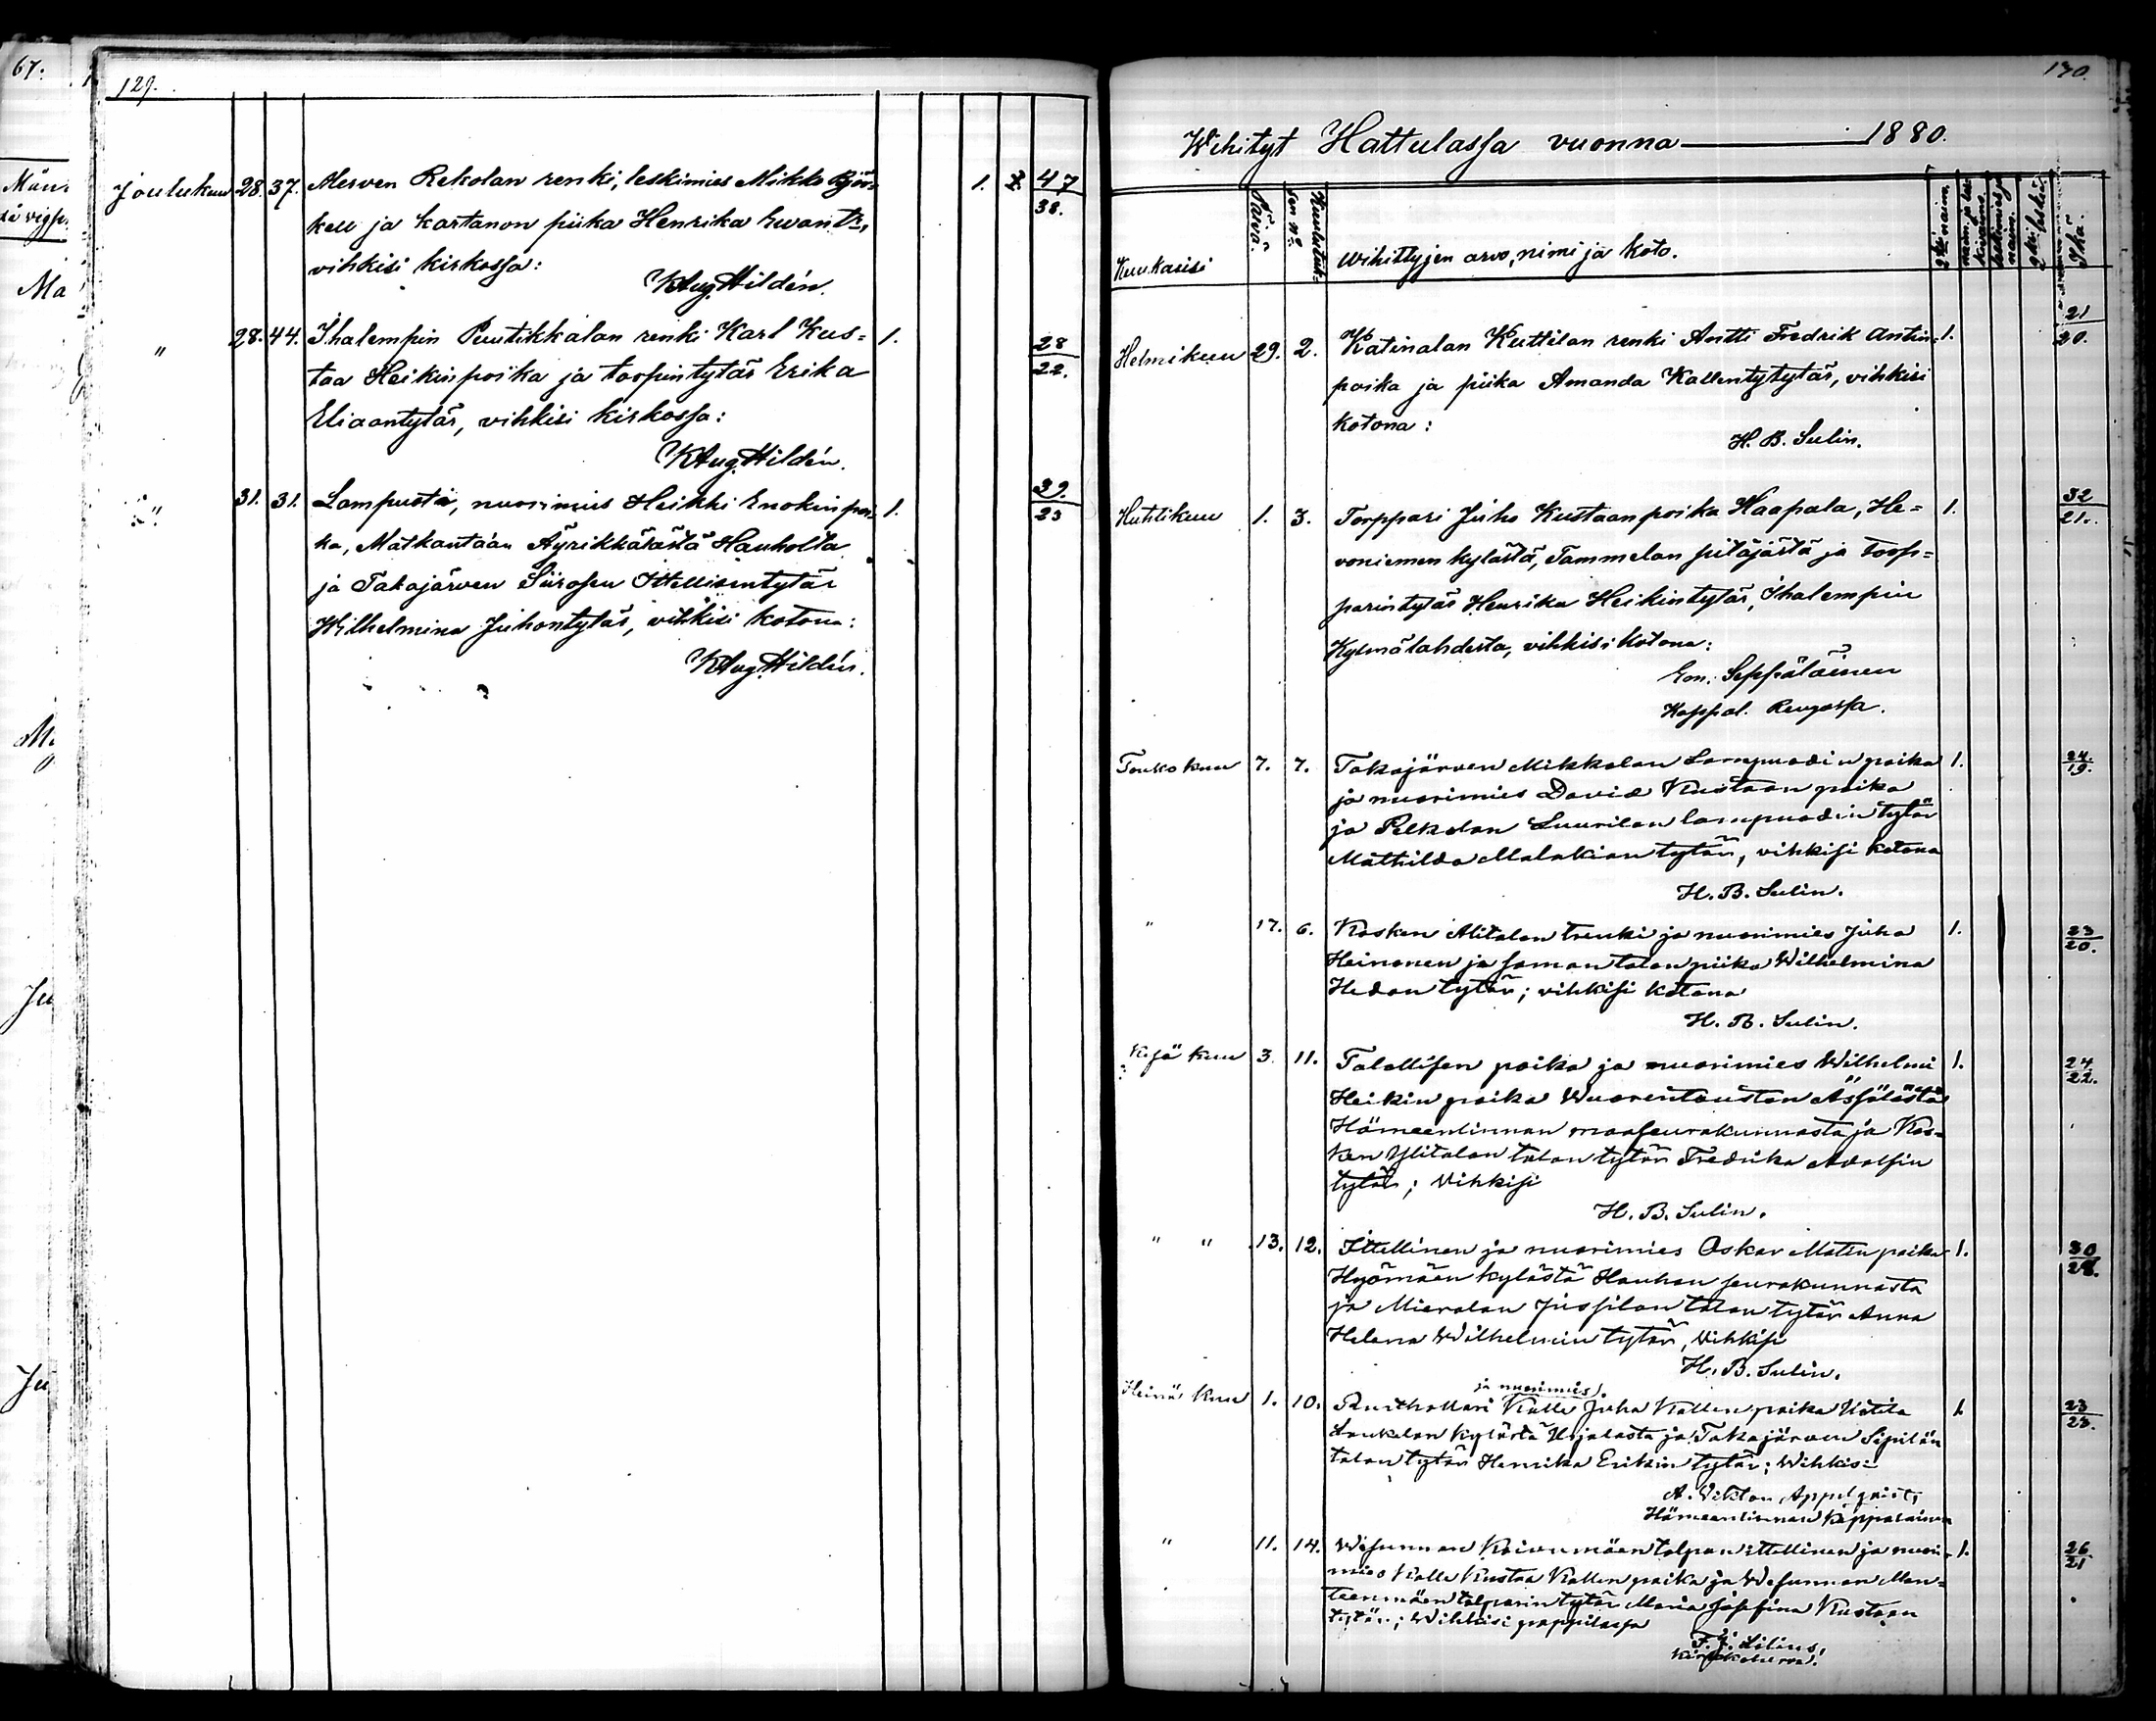 67:
129.
Joulukuu 28. 37. Mesven Rekolan renki, leskimies Mikko Björ= 1. 47
kell ja kartanon piika Henrika 38.
vihkisi kirkossa:
K Aug. Hildén.
" 28. 44. Ihalempin Puutikkalan renki Karl Kus= 1. 28
taa Heikinpoika ja torpintytär Erika 22.
Eliaantytär, vihkisi kirkossa:
K Aug. Hildén.
" 31. 31. Lampusti, nuorimies Heikki Enokinpoi= 1. 39.
ka, Matkantään Äyrikkälästä Hauholta 23
ja Takajärven Siirosen Ittellisentytär
Wilhelmina Juhontytär, vihkisi kotona:
K Aug. Hildén.
130.
Wihityt Hattulassa vuonna 1880.
Kuukausi Päivä. Kuulutuk= sen No Wihittyjen arvo, nimi ja koto. Ikä.
Helmikuu 29. 2. Katinalan Kuttilan renki Antti Fredrik Antin= 1. 21
poika ja piika Amanda Kallentytytär, vihkisi 20.
kotona:
H. B. Sulin.
Huhtikuu 1. 3. Torppari Juho Kustaanpoika Haapala, He= 1. 32
voniemen kylästä, Tammelan pitäjästä ja torp= 21.
parintytär Henrika Heikintytär, Ihalempin
Kylmälahdesta, vihkisi kotona:
Em. Seppäläinen
Kappal. Rengossa.
Toukokuu 7. 7. Takajärven Mikkolan Lampuodin poika 1. 24.
ja nuorimies David Kustaan poika 19.
ja Pelkolan Luurilan lampuodin tytär
Mathilda Malakian tytär, vihkisi kotona
H. B. Sulin.
" 17. 6. Kosken Alitalon trenki ja nuorimies Juha 1. 23
Heinonen ja saman talon piika Wilhelmina 20.
Hedan tytär; vihkisi kotona
H. B. Sulin.
Kesä kuu 3. 11. Talollisen poika ja nuorimies Wilhelmi 1. 24
Heikin poika Wuorentaustan Ässälästä 22.
Hämeenlinnan maaseurakunnasta ja Kos=
ken Ylitalon talon tytär Fredrika Adolfin
tytär; Vihkisi
H. B. Sulin.
" " 13. 12. Ittellinen ja nuorimies Oskar Matin poika 1. 30
Hyömäen kylästä Hauhon seurakunnasta 28.
ja Mieralan Jussilan talon tytär Anna
Helena Wilhelmin tytär, Vihkisi
H. B. Sulin.
ja nuorimies
Heinä kuu 1. 10. Rusthollari Kalle Juha Kallen poika Uotila 1. 23
Laukelan kylästä Urjalasta ja Takajärven Sipilän 23.
talon tytär Henrika Erikin tytär; Wihkisi
A. Viktor Appelqvist,
Hämeenlinnan kappalainen
" 11. 14. Wesunnan Koivumäen talpan ittellinen ja nuori= 1. 26
mies Kalle Kustaa Kallen poika ja Wesunnan Man= 21
teenmäen talparin tytär Maria Josefina Kustaan
tytär; Wihkisi pappilassa
F. J. Lilius,
Kirkkoherra.